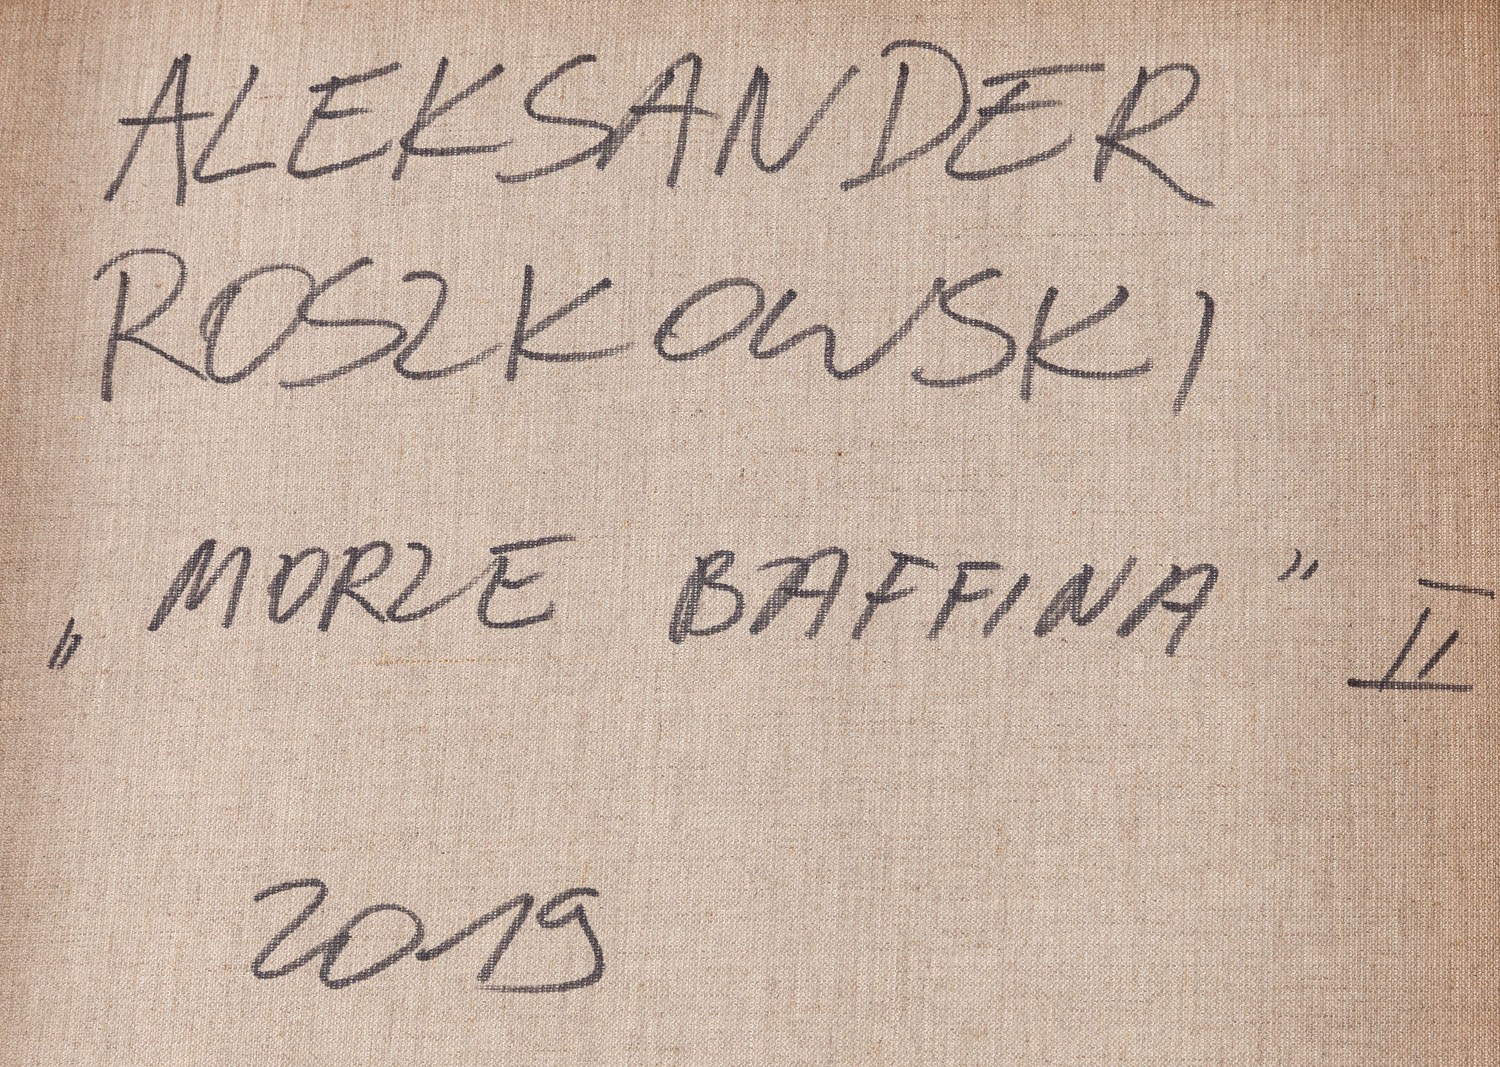 ALEKSANDER
ROSZKOWSKI
„MORZE BAFFINA” II
2019